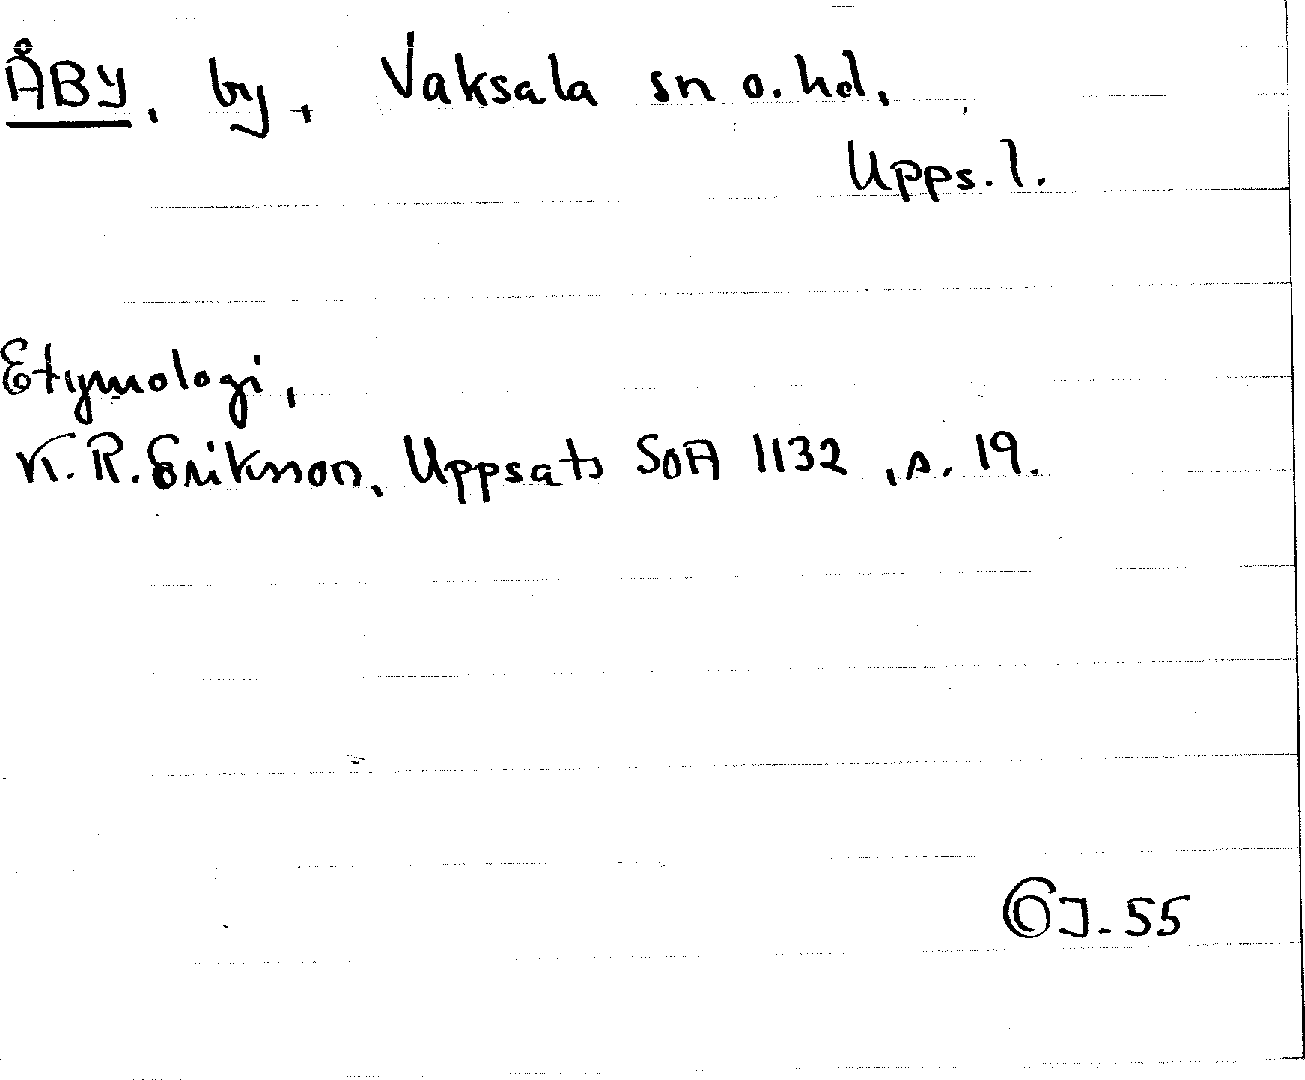 ÅBY, by, Vaksala sn o. hd,
Upps. l.
Etymologi,
K. R. Erikson, Uppsats SOA 1132, s. 19.
J-55